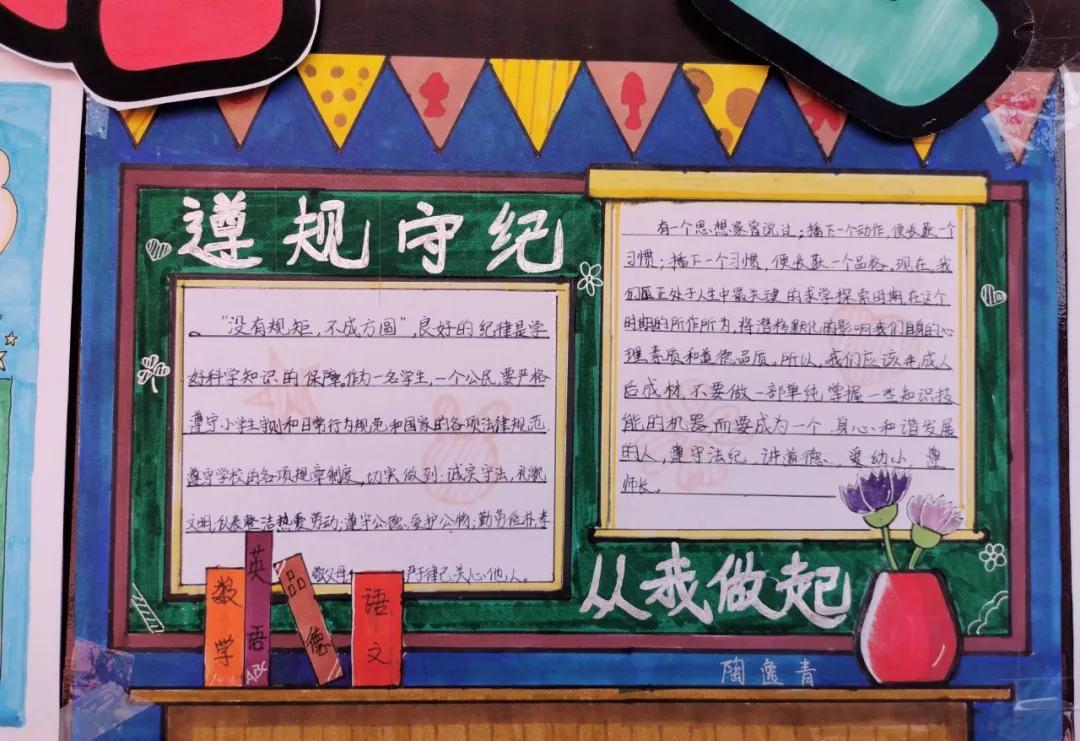 遵规守纪
“没有规矩，不成方圆”，良好的纪律是学
好科学知识的保障，作为一名学生，一个公民，要严格
遵守小学生守则和日常行为规范和国家的各项法律规范，
遵守学校的各项规章制度，切实做到：诚实守法，礼貌
文明；仪表整洁热爱劳动；遵守公德、爱护公物；勤劳俭朴孝
敬父母 严律己关心他人。
有一个思想家曾说过；播下一个动作，便收获一个
习惯；播下一个习惯，便收获一个品格。现在，我
们正处于人生中最关键的求学探索时期，在这个
时期的所作所为，将潜移默化的影响我们自身的心
理素质和道德品质。所以，我们应该先成人
后成材，不要做一部单纯掌握一些知识技
能的机器，而要成为一个身心和谐发展
的人，遵守法纪，讲道德，爱幼小，尊
师长。
从我做起
数学
英语
ABC
品德
语文
陶逸青